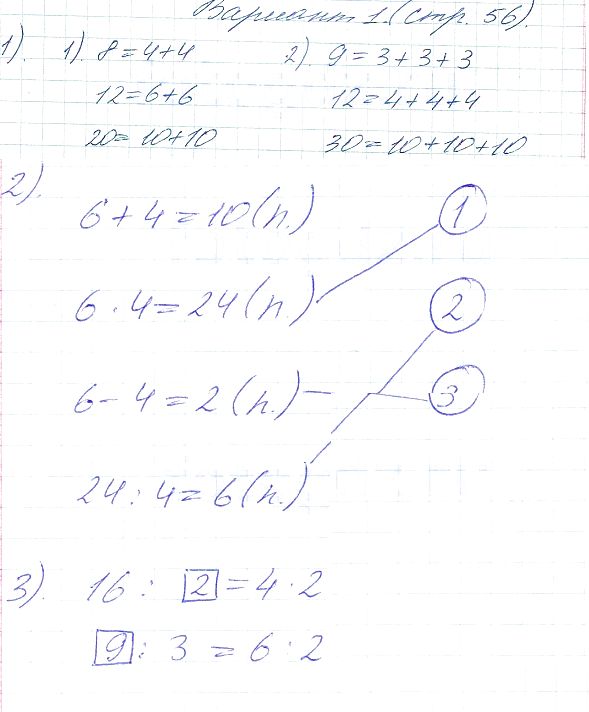 Вариант 1. (стр. 56).
1). 1). 8 = 4 + 4 2). 9 = 3 + 3 + 3
12 = 6 + 6 12 = 4 + 4 + 4
20 = 10 + 10 30 = 10 + 10 + 10
2).
6 + 4 = 10 (п.) 1
6 · 4 = 24 (п.) 2
6 - 4 = 2 (п.) 3
24 : 4 = 6 (п.)
3). 16 : 2 = 4 · 2
9 : 3 = 6 : 2